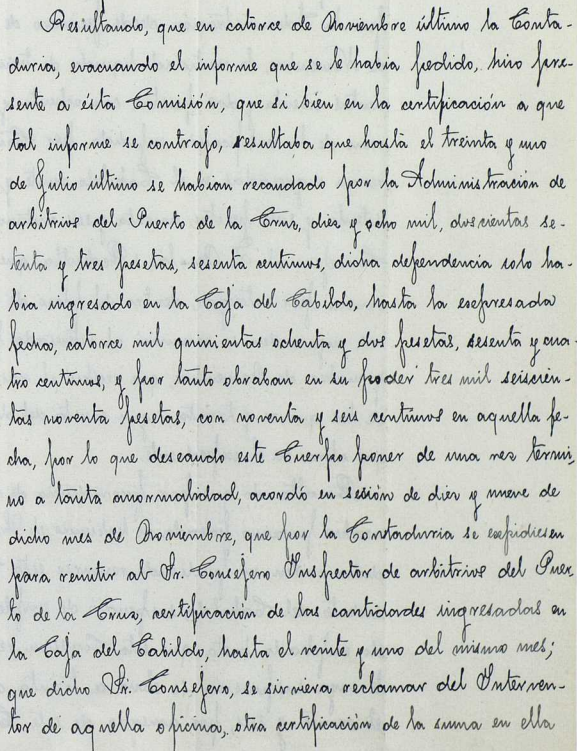 Resultando, que en catorce de Noviembre último la Conta-
duria, evacuando el informe que se le habia pedido, hizo pre-
sente a ésta Comisión, que si bien en la certificación a que
tal informe se contrajo, resultaba que hasta el treinta y uno
de Julio último se habian recaudado por la Administración de
arbitrios del Puerto de la Cruz, diez y ocho mil, doscientas se-
tenta y tres pesetas, sesenta centimos, dicha dependencia solo ha-
bia ingresado en la Caja del Cabildo, hasta la expresada
fecha, catorce mil quinientas ochenta y dos pesetas, sesenta y cua-
tro centimos, y por tanto obraban en su poder tres mil seiscien-
tas noventa pesetas, con noventa y seis centimos en aquella fe-
cha, por lo que deseando este Cuerpo poner de una vez termi-
no a tanta anormalidad, acordó en sesión de diez y nueve de
dicho mes de Noviembre, que por la Contaduria se expidiesen
para remitir al Sr. Consejero Inspector de arbitrios del Puer-
to de la Cruz, certificación de las cantidades ingresadas en
la Caja del Cabildo, hasta el veinte y uno del mismo mes;
que dicho Sr. Consejero, se sirviera reclamar del Interven-
tor de aquella oficina, otra certificación de la suma en ella